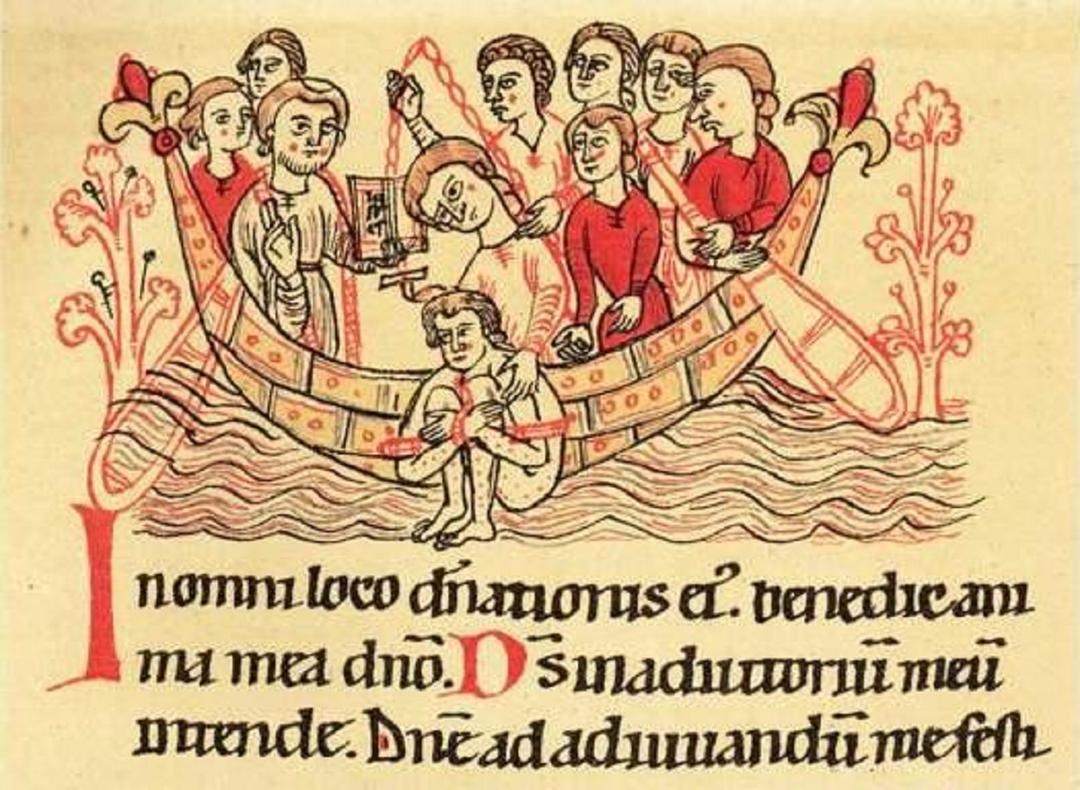 In omni loco dn̄ationis ei᾽. benedic ani
ma mea dn̄o. Ds̄ in adiutoriū meū
intende. Dnē ad adiuuandū me festi